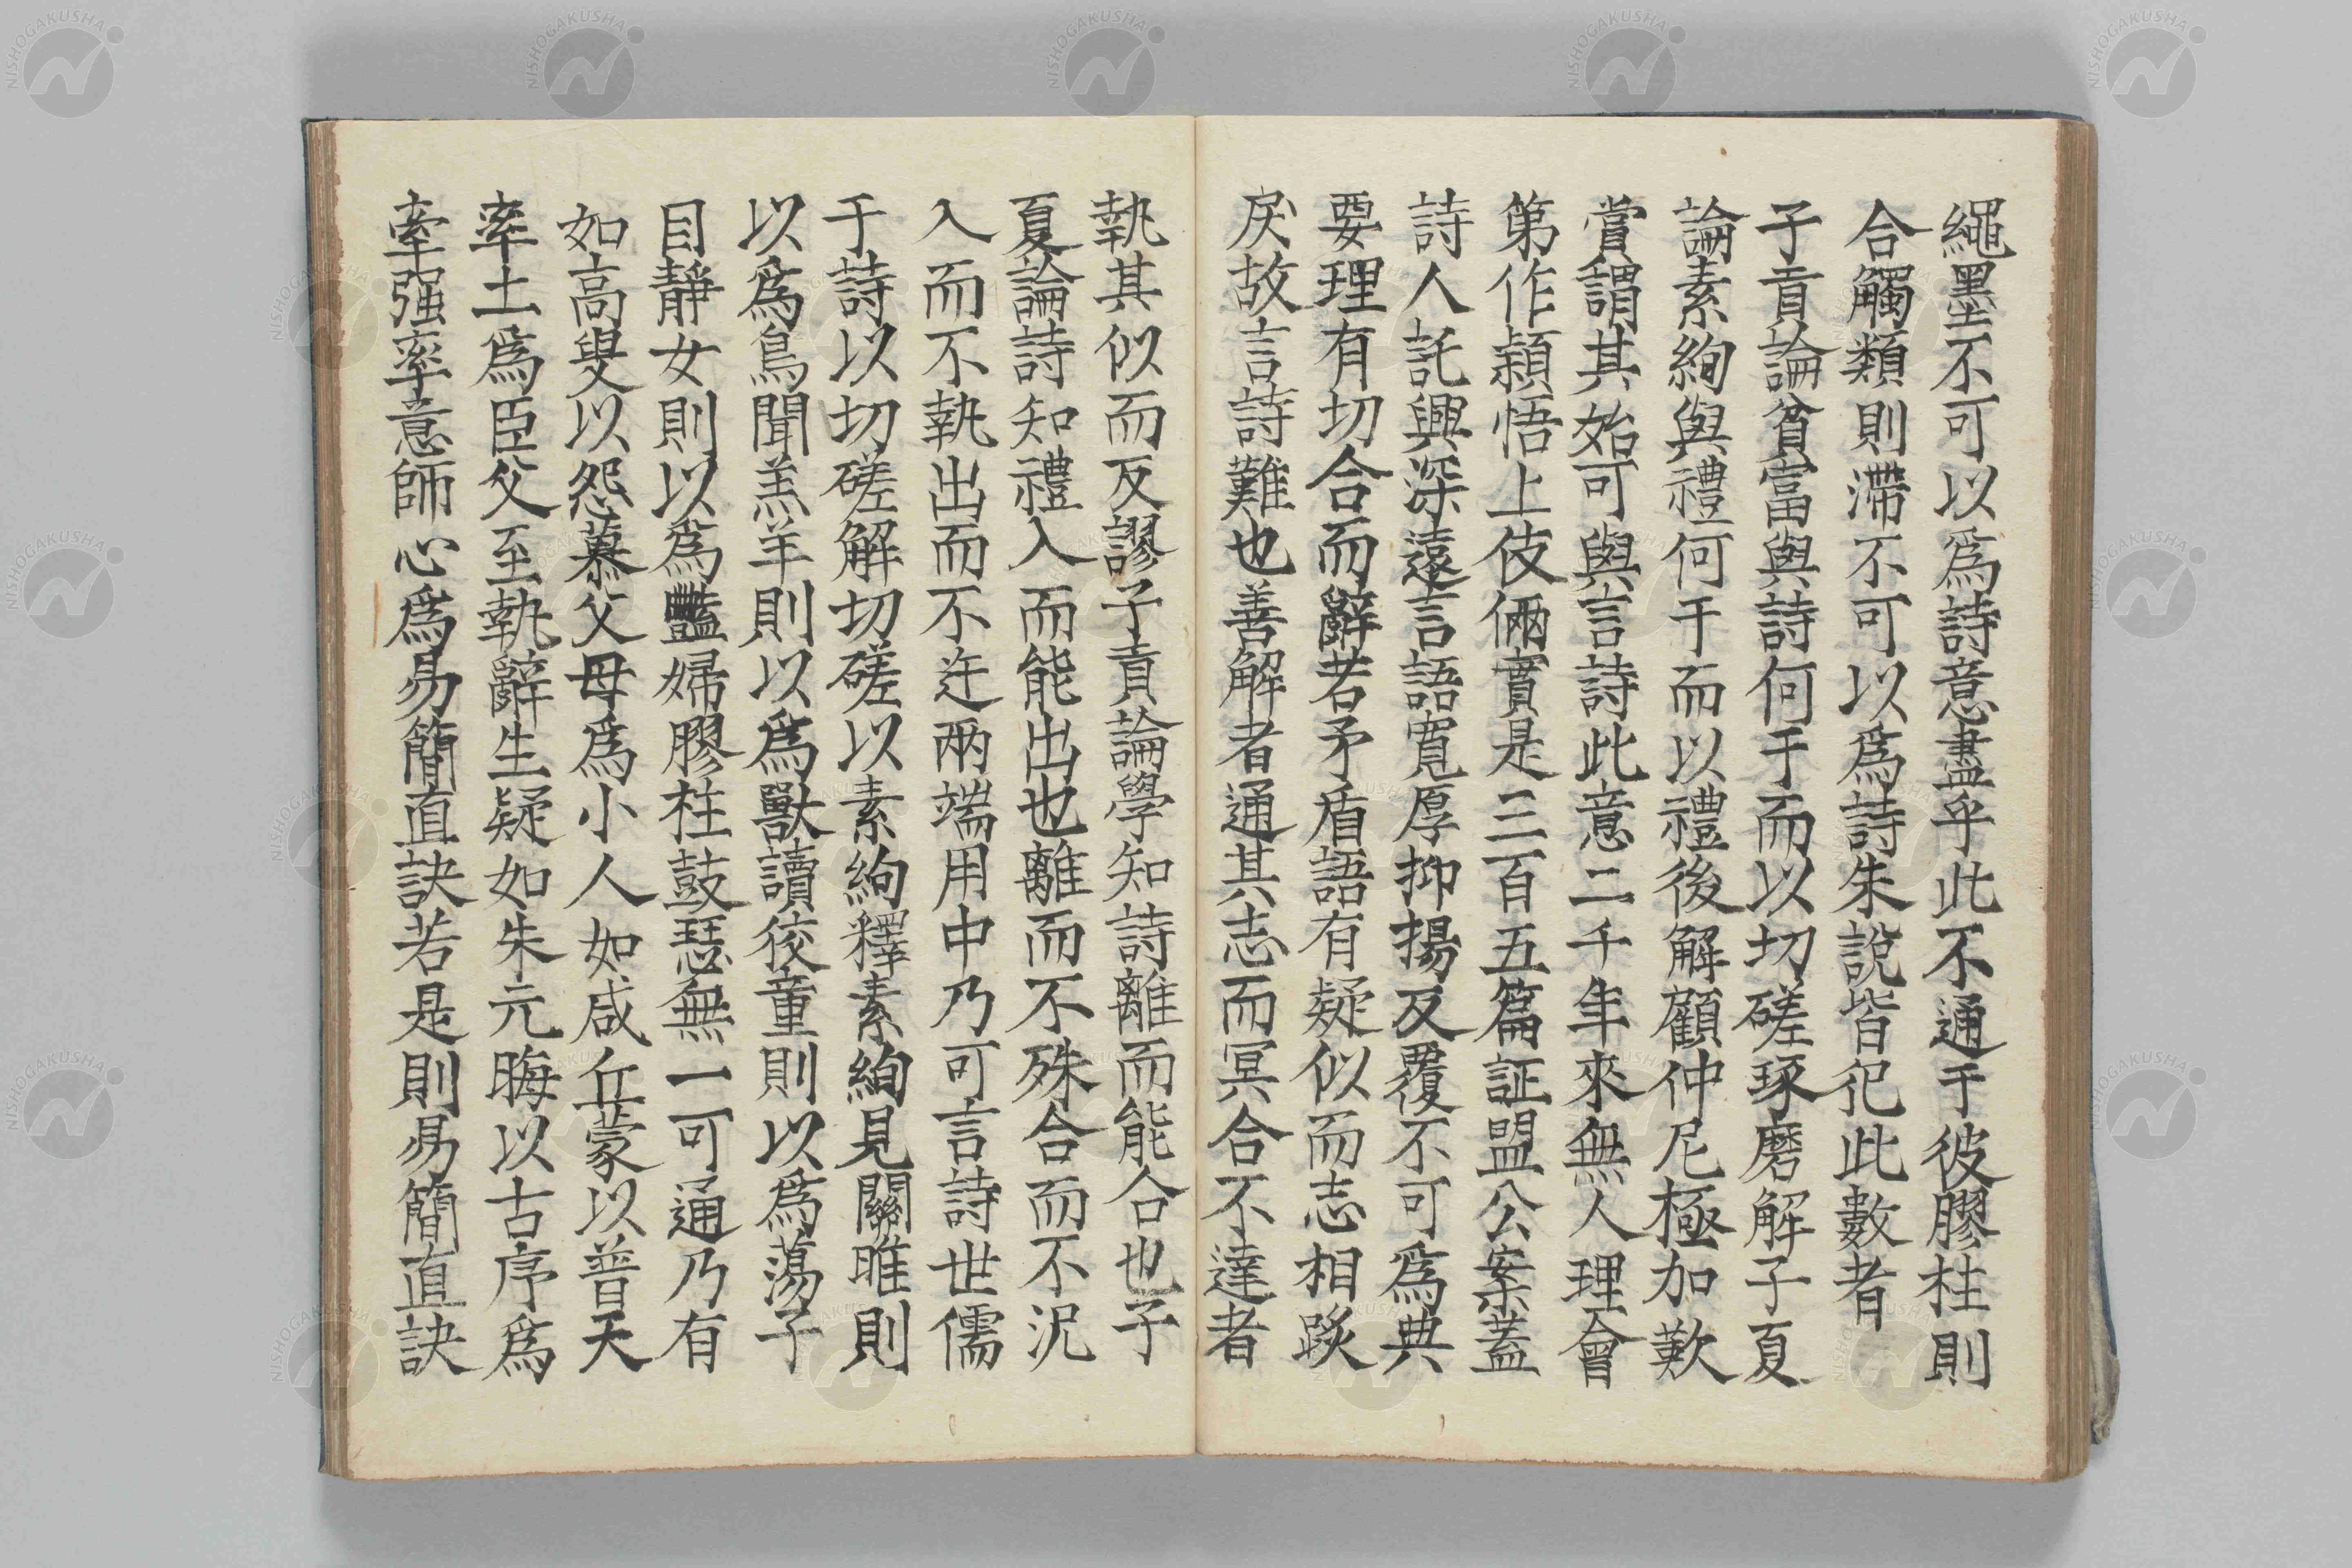 繩墨不可以爲詩意盡乎此不通于彼膠柱則
合觸類則滯不可以爲詩朱說皆犯此數者
子貢論貧富與詩何于而以切磋琢磨解子夏
論素絢與禮何干而以禮後解顧仲尼極加歎
賞謂其始可與言詩此意二千年來無人理會
第作穎悟上伎倆實是三百五篇証盟公案蓋
詩人託興深遠言語寬厚抑揚反覆不可爲典
要理有切合而辭若矛盾語有疑似而志相踐
戾故言詩難也善解者通其志而冥合不達者
執其似而反謬子貢論學知詩離而能合也子
夏論詩知禮入而能出也離而不殊合而不泥
入而不執出而不迕兩端用中乃可言詩世儒
于詩以切磋解切磋以素絢釋素絢見關雎則
以爲鳥聞羔羊則以爲獸讀狡童則以爲蕩子
目靜女則以爲豔婦膠柱鼓瑟無一可通乃有
如高叟以怨慕父母爲小人如咸丘蒙以普天
率土爲臣父至執辭生疑如朱元晦以古序爲
牽强率意師心爲易簡直訣若是則易簡直訣
NISHOGAKUSHA
NISHOGAKUSHA
NISHOGAKUSHA
NISHOGAKUSHA
NISHOGAKUSHA